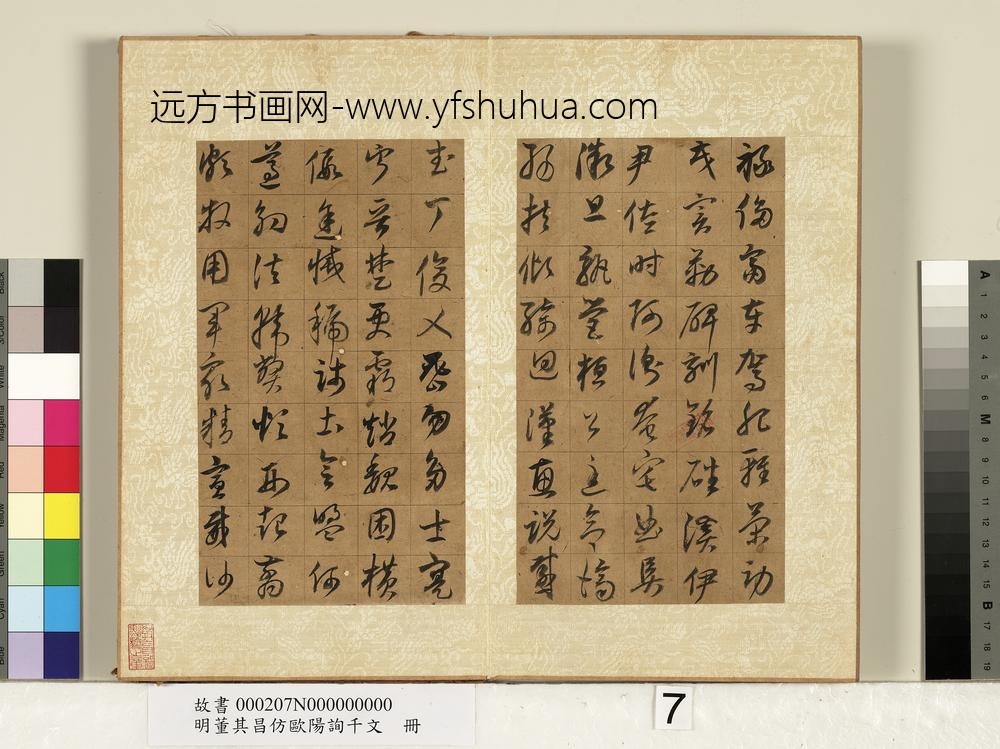 远方书画网-www.yfshuhua.com
祿侈富車駕肥輕策功
茂實勒碑刻銘磻溪伊
尹佐時阿衡奄宅曲阜
微旦孰營桓公匡合濟
弱扶傾綺迴漢惠說感
武丁俊乂密勿多士寔
寧晉楚更霸趙魏困橫
假途滅虢踐土會盟何
遵約法韓弊煩刑起翦
頗牧用軍最精宣威沙
故書 000207N000000000
明董其昌仿歐陽詢千文 冊
7